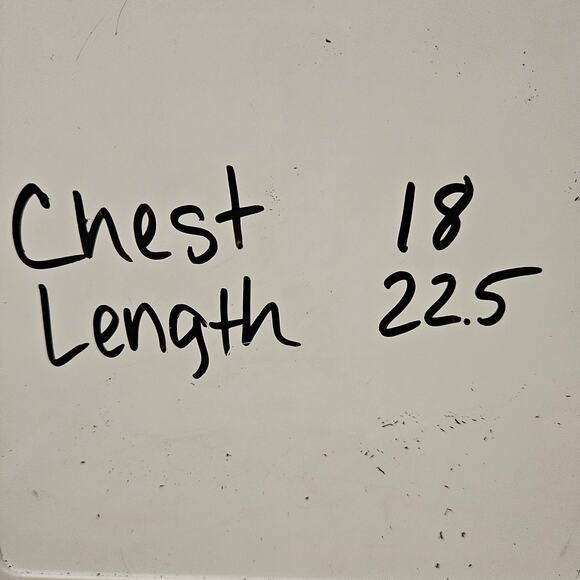 Chest 18
Length 22.5